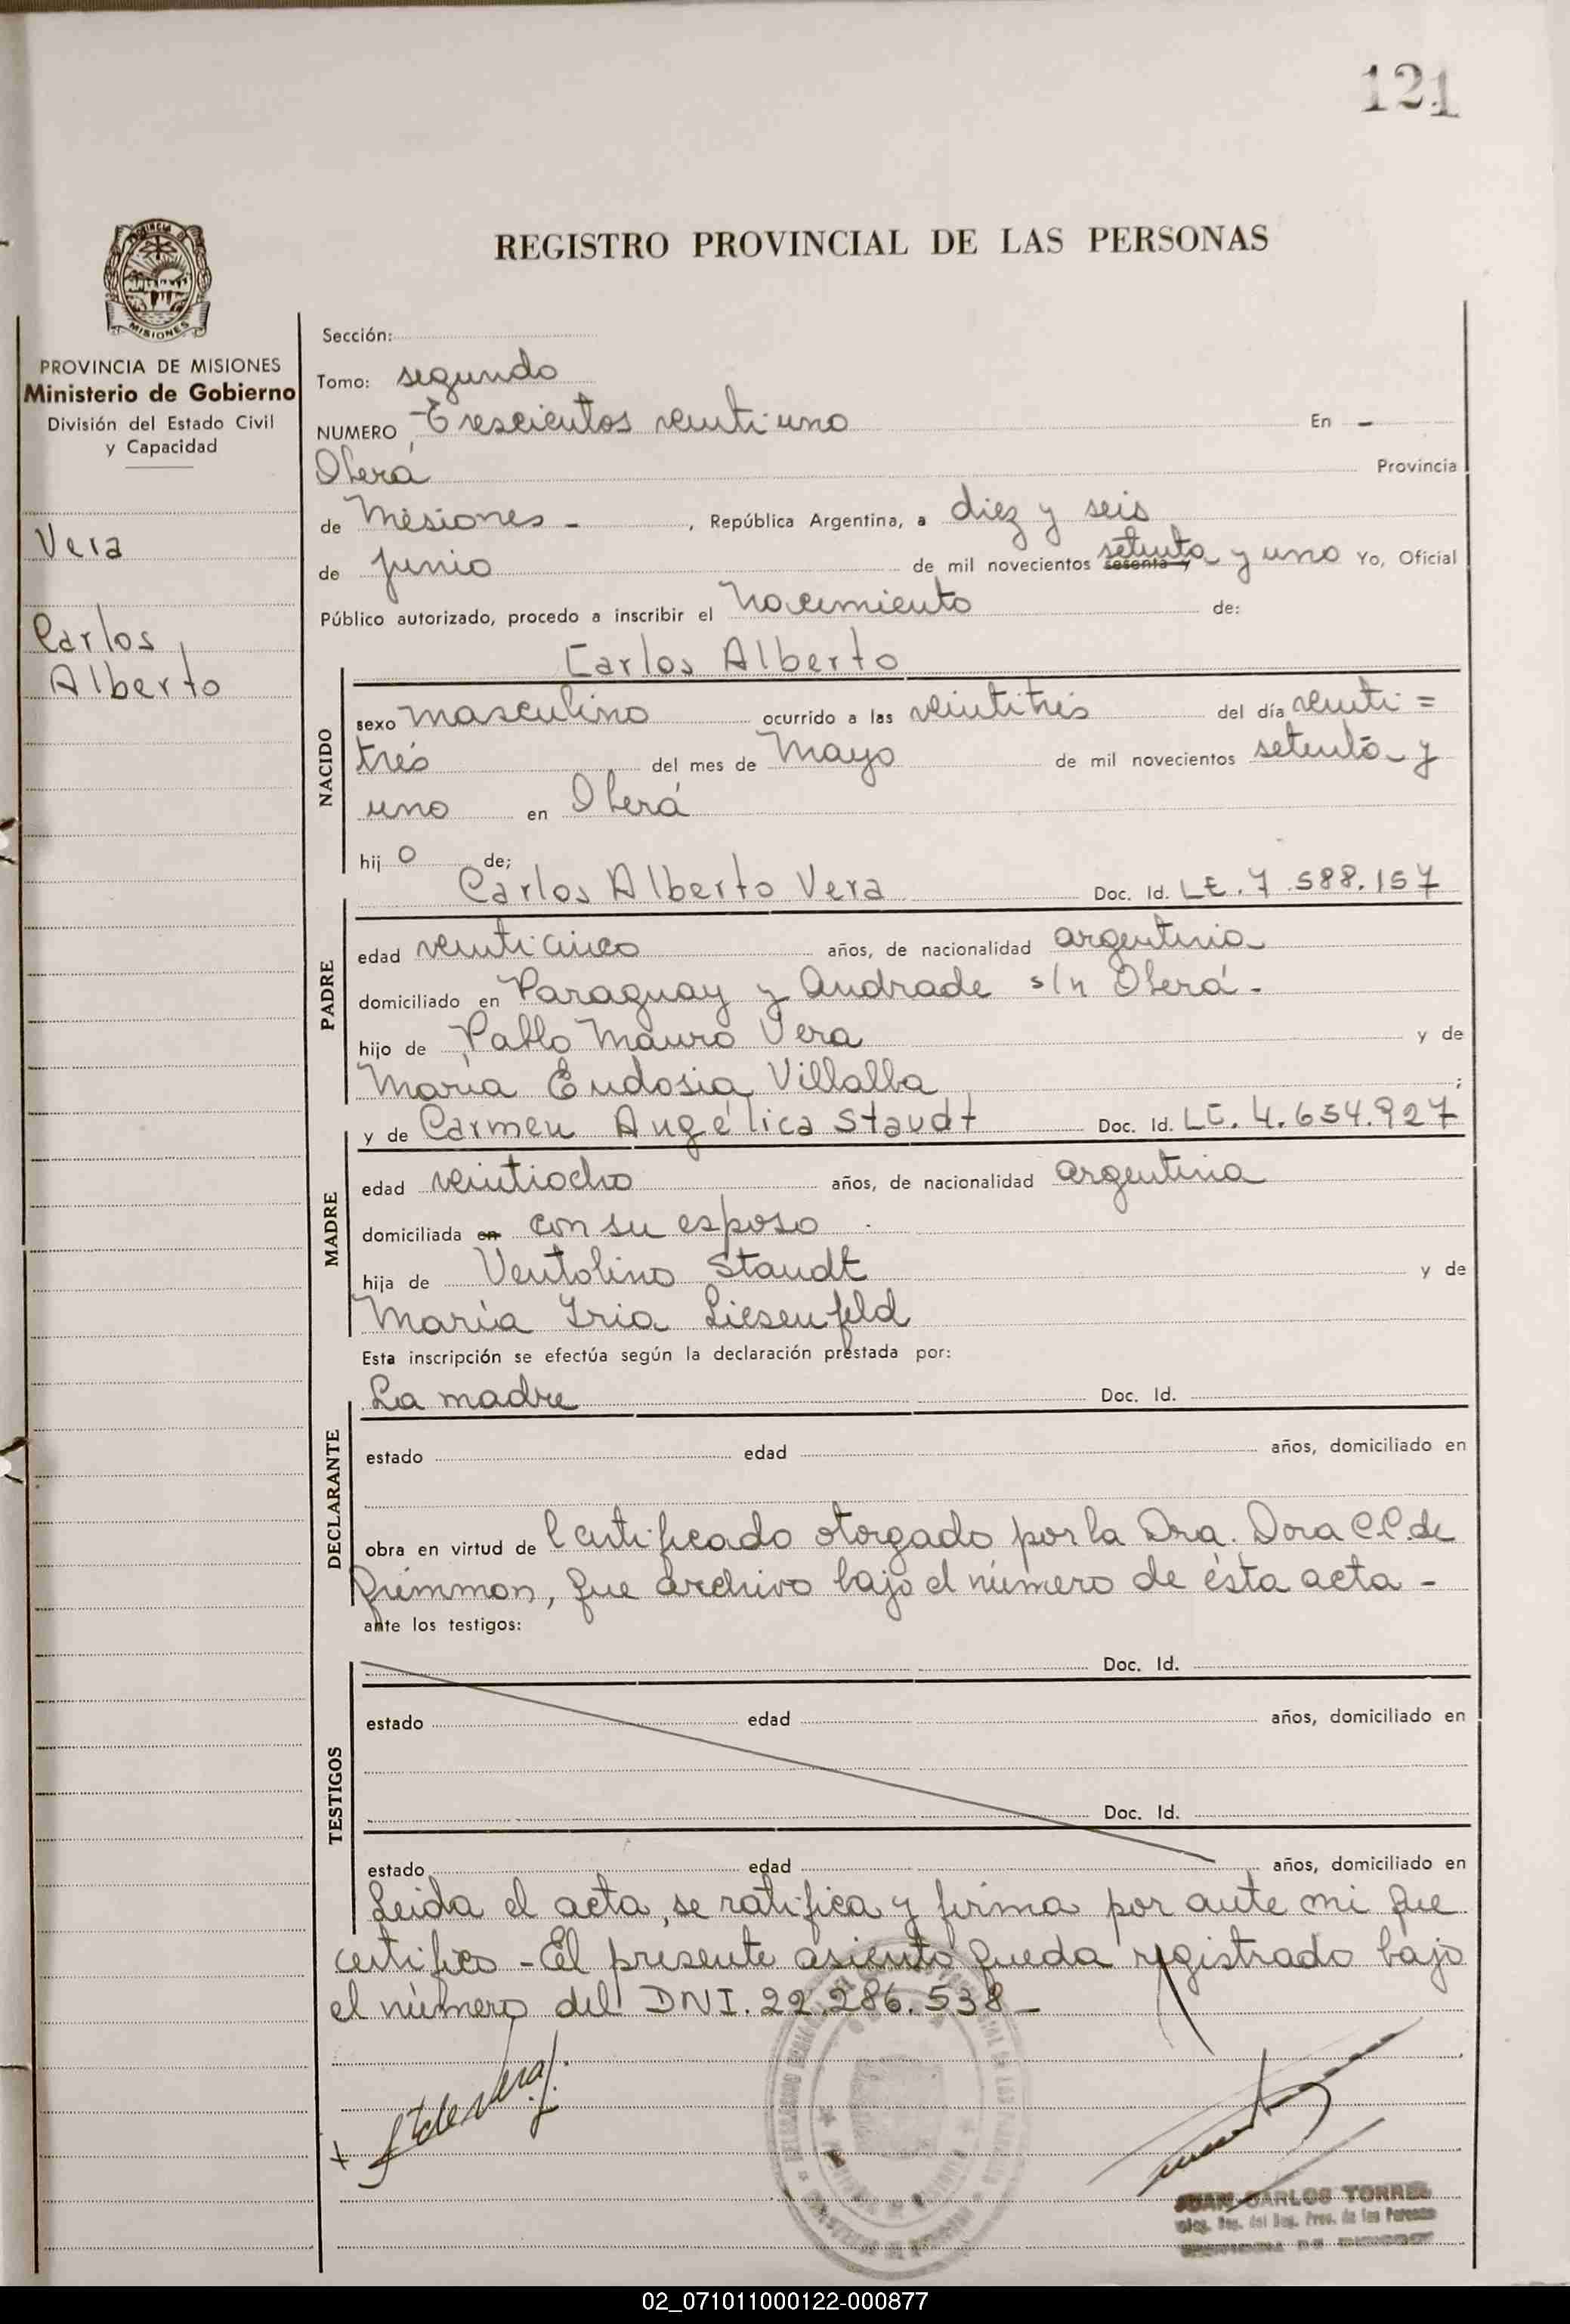 121
REGISTRO PROVINCIAL DE LAS PERSONAS
MISIONES
PROVINCIA DE MISIONES
Ministerio de Gobierno
División del Estado Civil
y Capacidad
Vera
Carlos
Alberto
Sección:
Tomo: segundo
NUMERO Trescientos veintiuno En -
Oberá Provincia
de Misiones - , República Argentina, a diez y seis
de junio de mil novecientos sesenta y setenta y uno Yo, Oficial
Público autorizado, procedo a inscribir el nacimiento de:
Carlos Alberto
NACIDO
sexo masculino ocurrido a las veintitrés del día veinti=
trés del mes de Mayo de mil novecientos setenta y
uno en Oberá
hijo de;
Carlos Alberto Vera Doc. Id. LE. 7.588.157
PADRE
edad veinticinco años, de nacionalidad argentina
domiciliado en Paraguay y Andrade s/n Oberá-
hijo de Pablo Mauro Vera y de
María Eudosia Villalba ;
y de Carmen Angélica Staudt Doc. Id. LC. 4.654.927
MADRE
edad veintiocho años, de nacionalidad argentina
domiciliada en con su esposo
hija de Ventolino Staudt y de
María Iria Liesenfeld
Esta inscripción se efectúa según la declaración prestada por:
La madre Doc. Id.
DECLARANTE
estado edad años, domiciliado en
obra en virtud de Certificado otorgado por la Dra. Dora C.C. de
que archivo bajo el número de ésta acta -
ante los testigos:
Doc. Id.
TESTIGOS
estado edad años, domiciliado en
Doc. Id.
estado edad años, domiciliado en
Leida el acta, se ratifica y firma por ante mi que
certifico - El presente asiento queda registrado bajo
el número del DNI. 22.286.538-
JUAN CARLOS TORRES
02_071011000122-000877